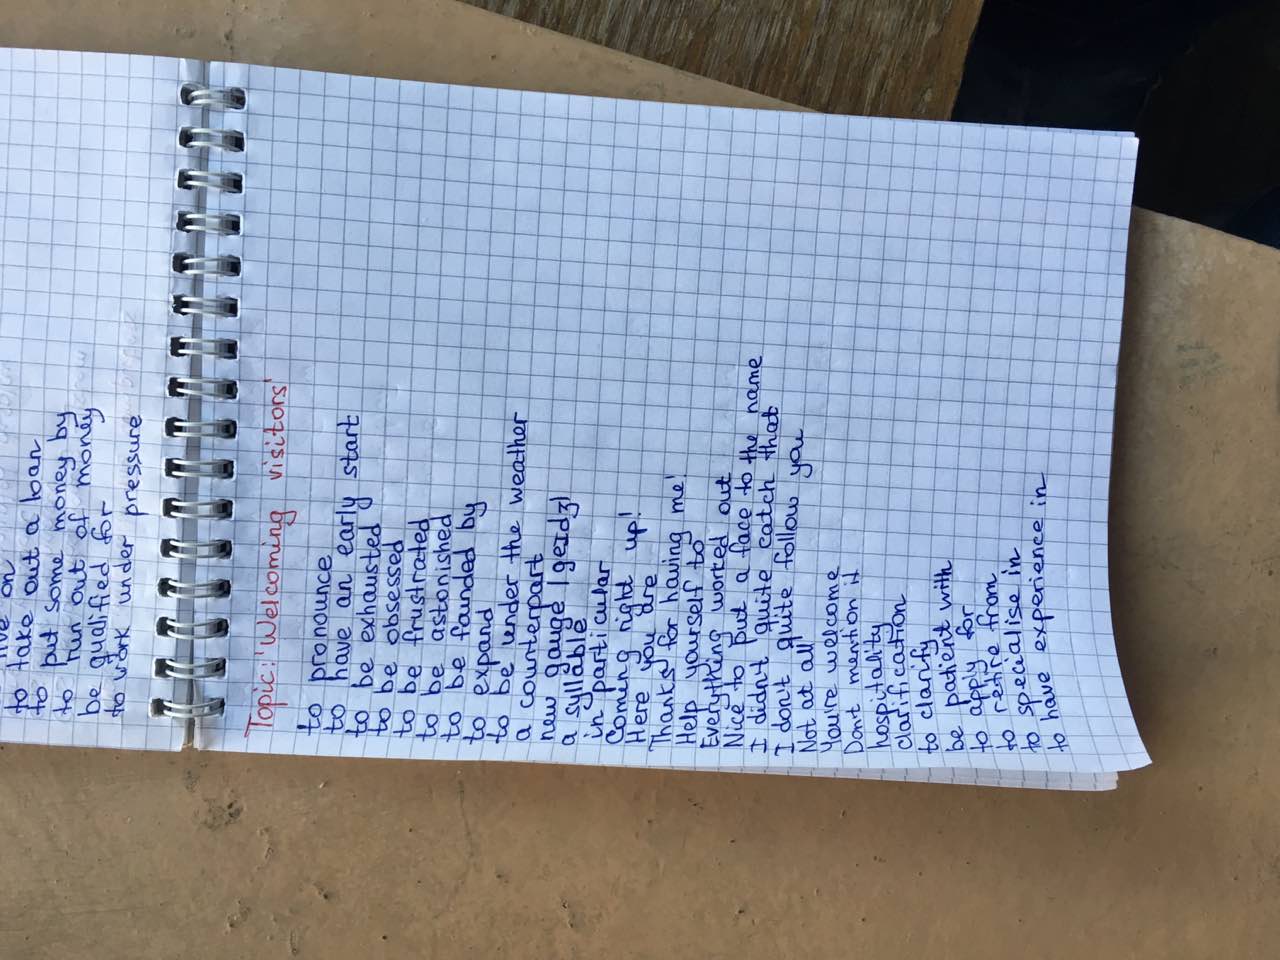 live on
to take out a loan
to put some money by
to run out of money
be qualified for
to work under pressure
Topic: 'Welcoming visitors'
to pronounce
to have an early start
to be exhausted
to be obsessed
to be frustrated
to be astonished
to be founded by
to expand
to be under the weather
a counterpart
new gauge |geɪdʒ|
a syllable
in particular
Coming right up!
Here you are
Thanks for having me!
Help yourself to
Everything worked out
Nice to put a face to the name
I didn't quite catch that
I don't quite follow you
Not at all
You're welcome
Don't mention it
hospitality
clarification
to clarify
be patient with
to apply for
to retire from
to specialise in
to have experience in